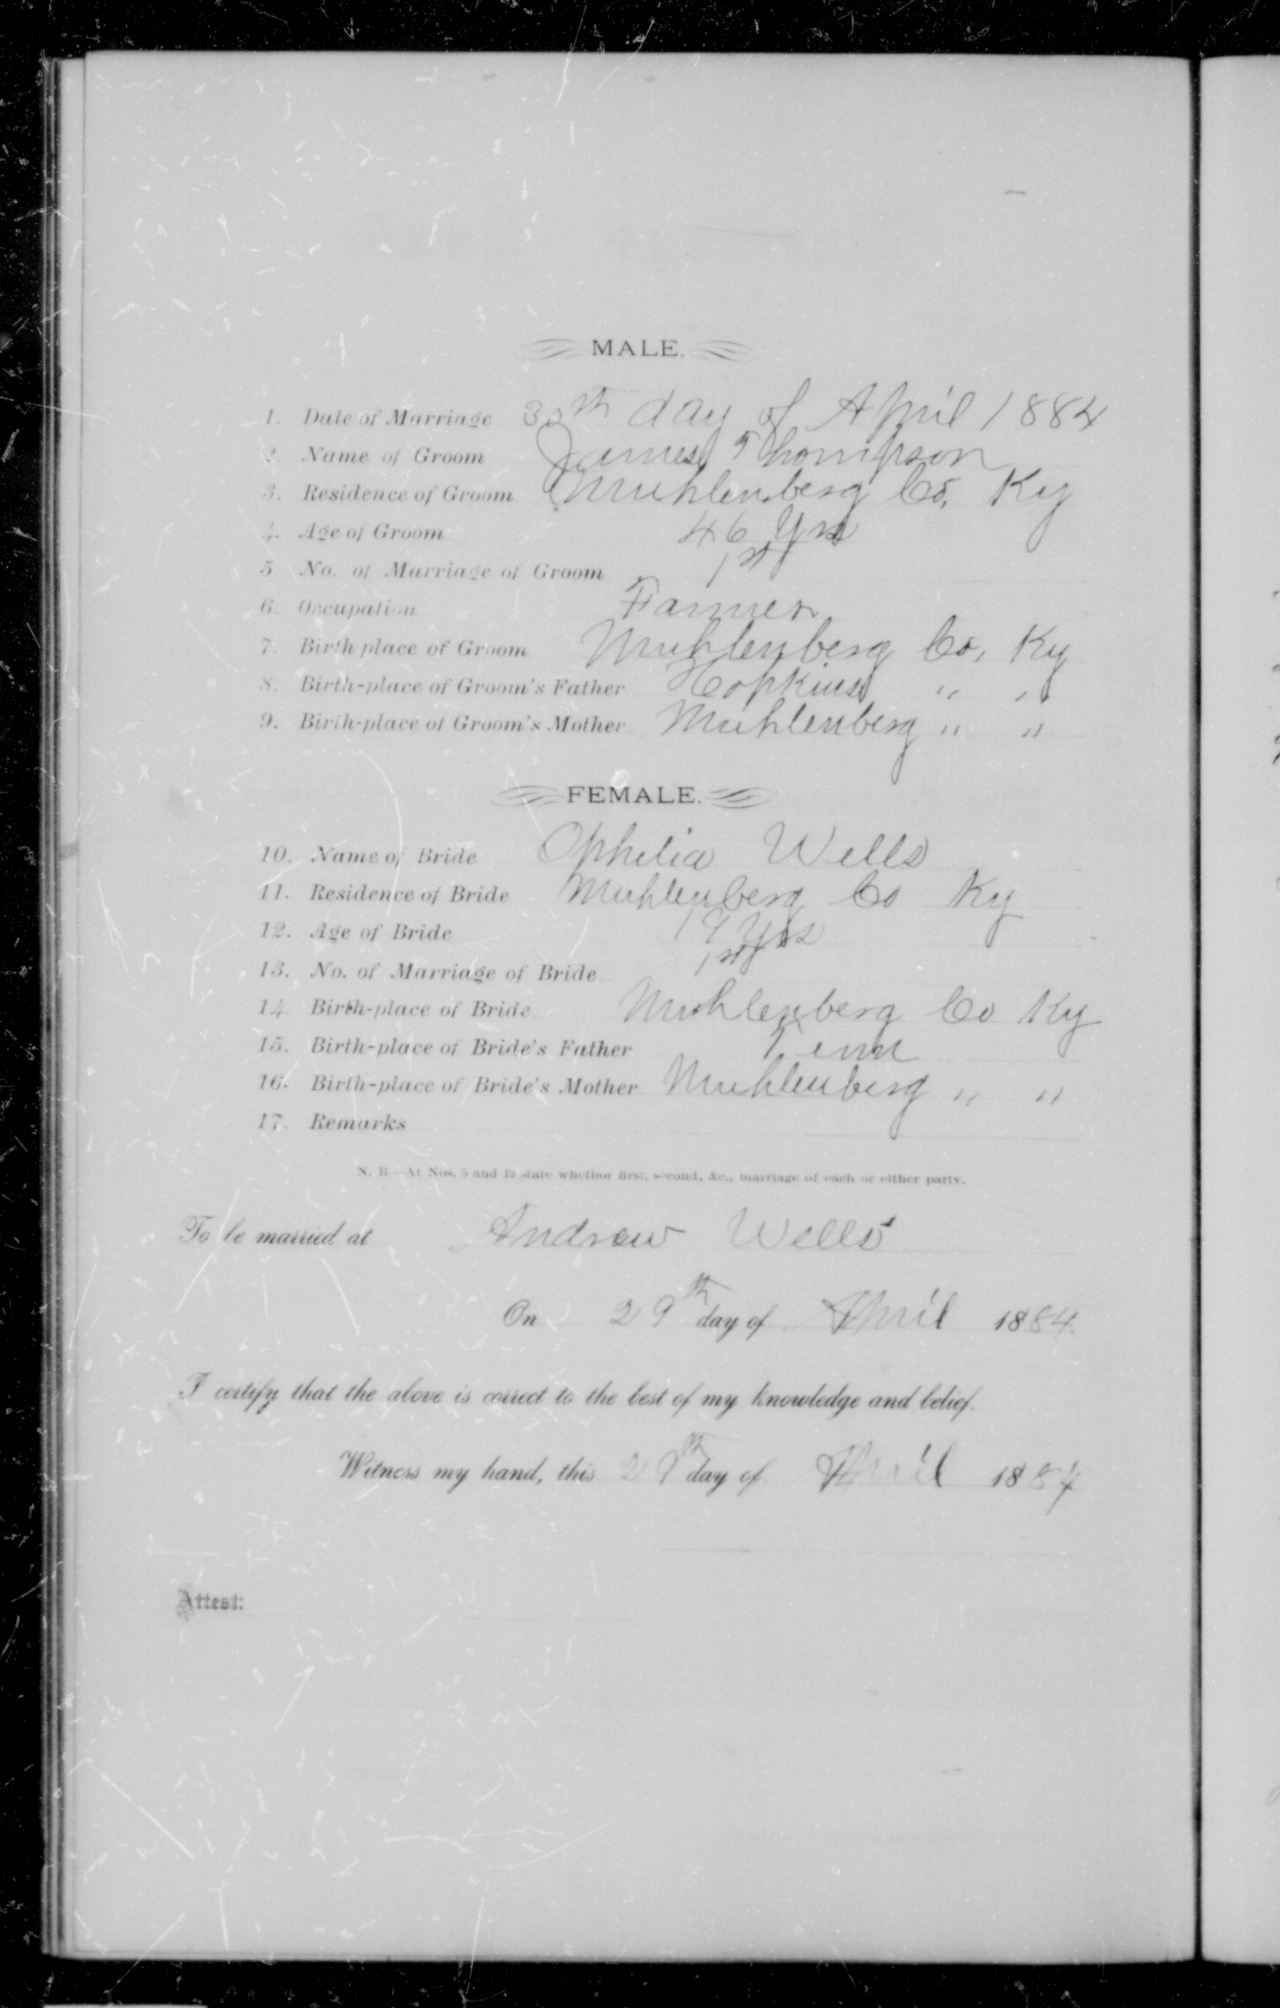 MALE.
1. Date of Marriage 30th day of April 1884
2. Name of Groom James Thompson
3. Residence of Groom Muhlenberg Co, Ky
4. Age of Groom 46 Yrs
5 No. of Marriage of Groom 1st
6. Occupation Farmer
7. Birth-place of Groom Muhlenberg Co, Ky
8. Birth-place of Groom's Father Hopkins " "
9. Birth-place of Groom's Mother Muhlenberg " "
FEMALE.
10. Name of Bride Ophelia Wells
11. Residence of Bride Muhlenberg Co Ky
12. Age of Bride 19 Yrs
13. No. of Marriage of Bride 1st
14 Birth-place of Bride Muhlenberg Co Ky
15. Birth-place of Bride's Father Tenn
16. Birth-place of Bride's Mother Muhlenberg " "
17. Remarks
N. B.—At Nos. 5 and 13 state whether first, second, &c., marriage of each or either party.
To be married at Andrew Wells'
On 29th day of April 1884
I certify that the above is correct to the best of my knowledge and belief.
Witness my hand, this 29th day of April 1884
Attest: